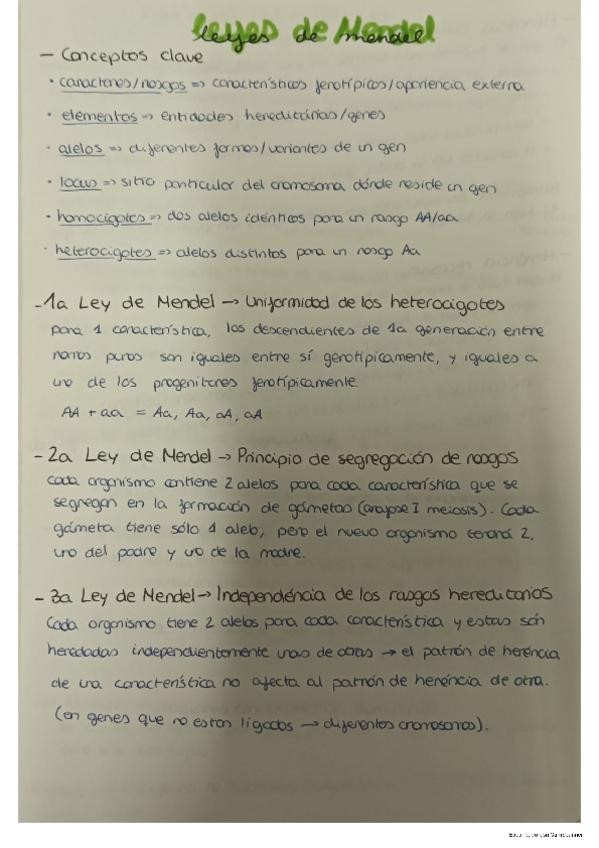 Leyes de Mendel
- Conceptos clave
· caracteres/rasgos => características fenotípicos/apariencia externa
· elementos => entidades hereditárias/genes
· alelos => diferentes formas/variantes de un gen
· locus => sitio particular del cromosoma dónde reside un gen
· homocigotes => dos alelos idénticos para un rasgo AA/aa
· heterocigotes => alelos distintos para un rasgo Aa
- 1a Ley de Mendel → Uniformidad de los heterocigotes
para 1 característica, los descendientes de 1a generación entre
razas puras son iguales entre sí genotípicamente, y iguales a
uno de los progenitores fenotípicamente
AA + aa = Aa, Aa, aA, aA
- 2a Ley de Mendel → Principio de segregación de rasgos
Cada organismo contiene 2 alelos para cada característica que se
segregan en la formación de gámetas (anafase I meiosis). Cada
gámeta tiene sólo 1 alelo, pero el nuevo organismo tendrá 2,
uno del padre y uno de la madre.
- 3a Ley de Mendel → Independéncia de los rasgos hereditarios
Cada organismo tiene 2 alelos para cada característica y estas són
heredadas independientemente unas de otras → el patrón de heréncia
de una característica no afecta al patrón de heréncia de otra.
(en genes que no estan ligados → diferentes cromosomas).